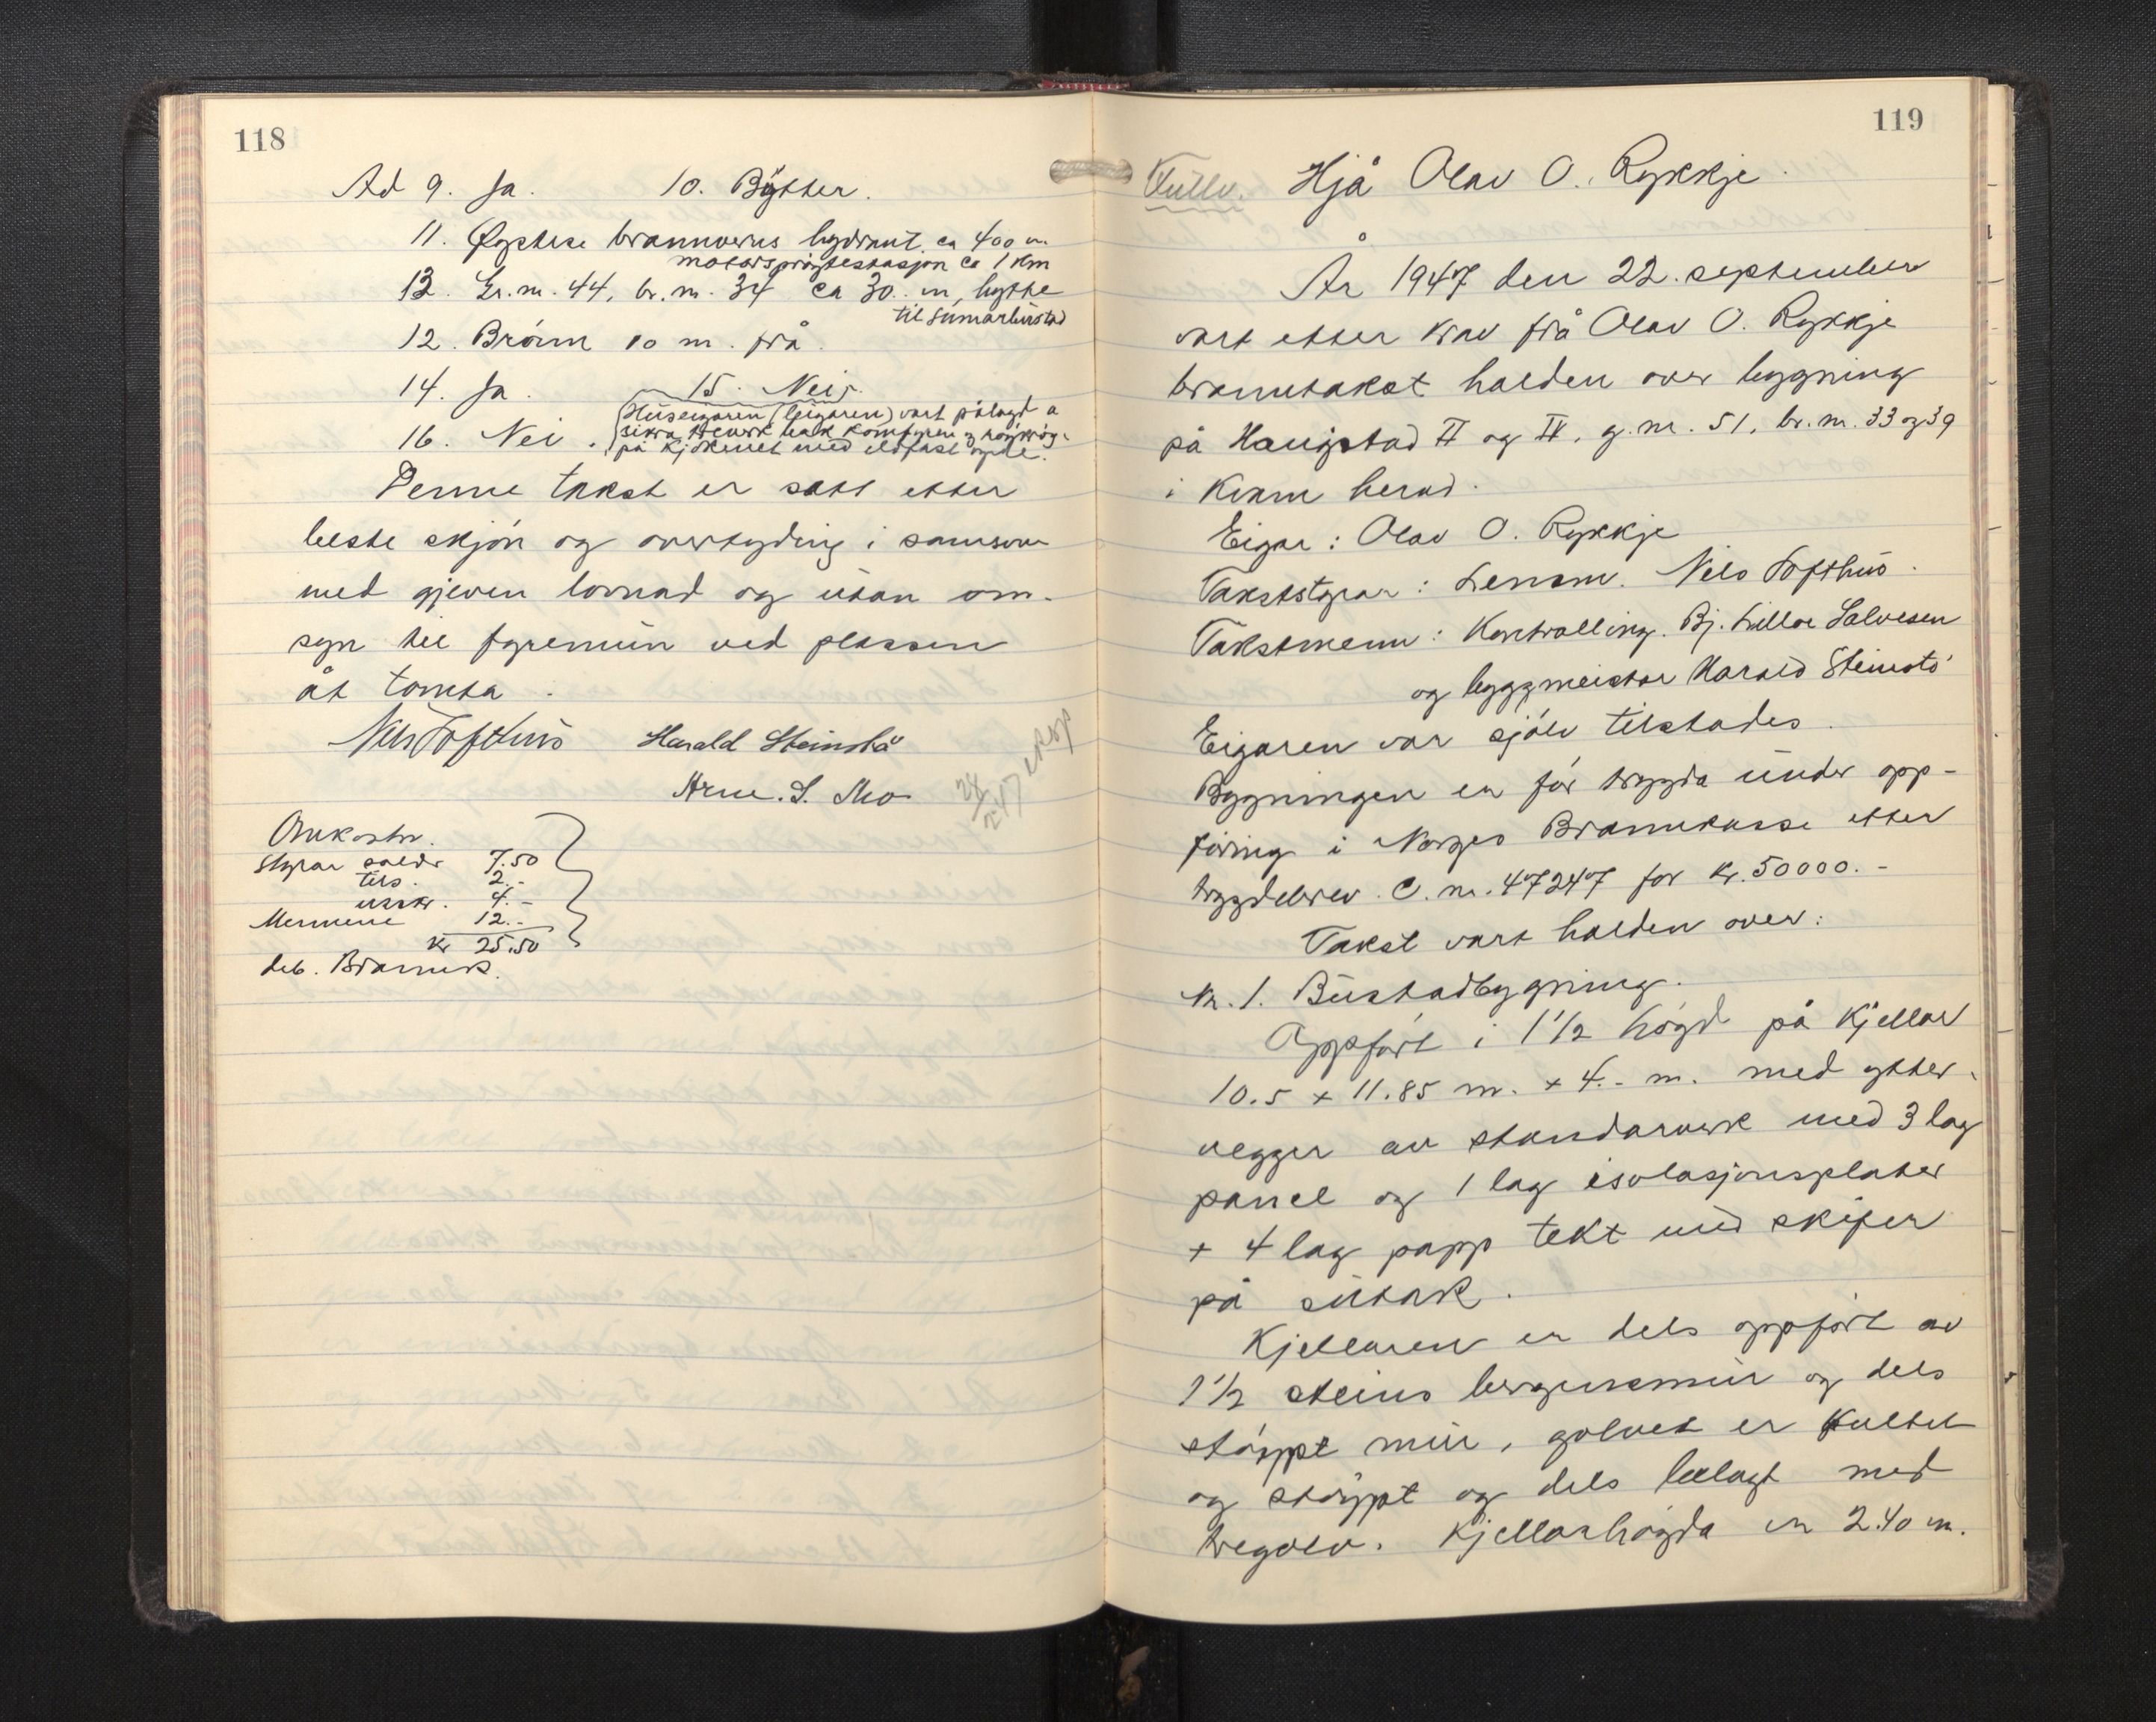 118
Ad 9. Ja. 10. Bøtter.
11. Øystese brannverns hydrant ca 400 m.
motorsprøytestasjon ca 1 km
13. Gr.nr. 44, br.nr. 34 ca 30 m, hytte
til sumarbustad
12. Brønn 10 m. frå.
14. Ja. 15. Nei.
16. Nei. Huseigaren (leigaren) vart pålagd å
sikra treverk bak komfyren og
på kjøkenet med eldfast
Denne takst er satt etter
beste skjön og overtyding i samsvar
med gjeven lovnad og utan om-
syn til fyremun ved plassen
åt tomta.
Nils Tofthus Harald Steinstø
Arne. S. Mo
Omkostn.
Styrar salær 7.50
tils. 2.-
utskr. 4.-
Mennene 12.-
kr 25.50
deb. Brannk.
119
Fullv. Hjå Olav O. Rykkje.
År 1947 den 22. september
vart etter krav frå Olav O. Rykkje
branntakst halden over bygning
på Haugstad II og IV, g.nr. 51, br.nr. 33 og 39
i Kvam herad.
Eigar: Olav O. Rykkje
Takststyrar: Lensm. Nils Tofthus.
Takstmenn: Kontrolling. Bj. Lillor Salvesen
og byggmeister Harald Steinstø
Eigaren var sjølv tilstades.
Bygningen er før trygda under opp-
føring i Norges Brannkasse etter
trygdebrev C. nr. 47247 for kr. 50000.-
Takst vart halden over:
Nr. 1. Bustadbygning.
Oppført i 1 1/2 høgd på kjellar
10.5 x 11.85 m. x 4.- m. med ytter-
vegger av standarverk med 3 lag
panel og 1 lag isolasjonsplater
+ 4 lag papp tekt med skifer
på sutak.
Kjellaren er dels oppført av
1 1/2 steins bergensmur og dels
støypt mur, golvet er kultet
og støypt og dels belagt med
tregolv. Kjellarhøgda er 2.40 m.